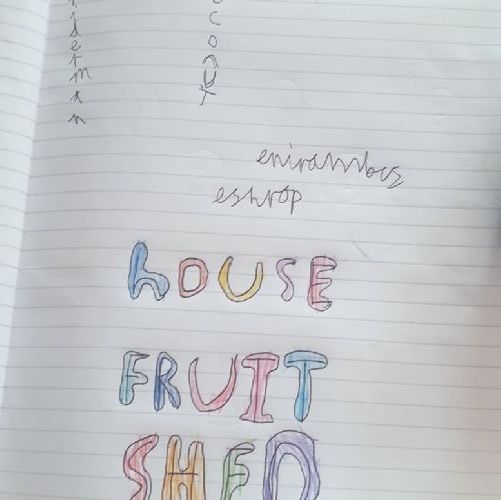 iderman
oconuT
enirambus
eshrop
hOUSE
FRUIT
SHED